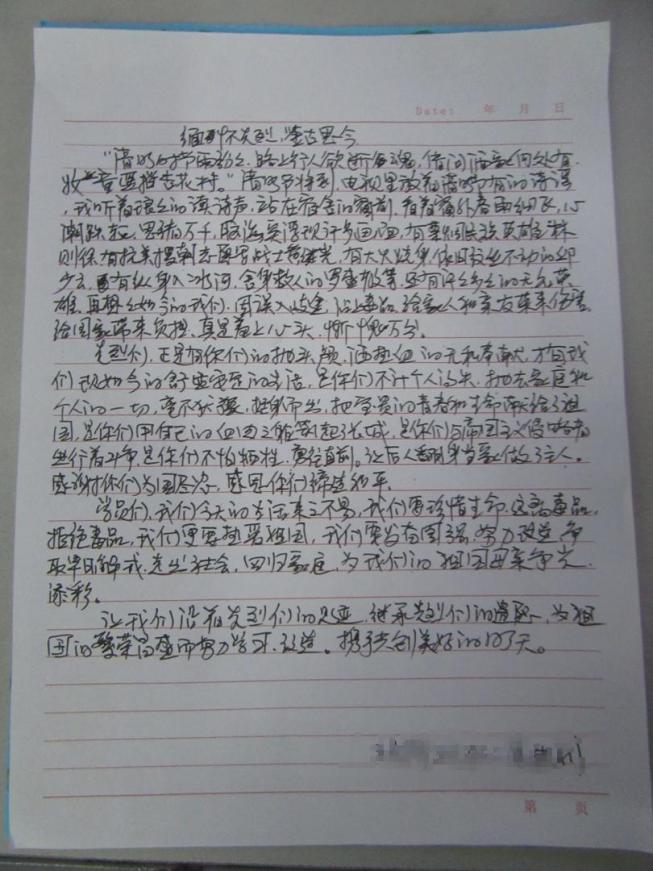 Date: 年 月 日
缅怀先烈，鉴古思今
"清明时节雨纷纷，路上行人欲断魂，借问酒家何处有，
牧童遥指杏花村。"清明节将到，电视里放着清明节有的诗词
，我听着琅琅的读诗声，站在宿舍的窗前，看着窗外春雨细飞，心
潮跌宕，思绪万千，脑海里浮现许多画面，有爱国民族英雄林
则徐，有抗美援朝志愿军战士黄继光，有大火烧身依旧纹丝不动的邱
少云，更有纵身入冰河，舍身救人的罗盛教等，还有许多的无名英
雄。再想想如今的我们，因误入歧途，沾上毒品，给家人和亲友带来伤害，
给国家带来负担，真是羞上心头，惭愧万分。
先烈们，正是有你们的抛头颅，洒热血的无私奉献，才有我
们现如今的舒适安逸的生活，是你们不计个人得失，抛去家庭和
个人的一切，毫不犹豫，挺身而出，把宝贵的青春和生命献给了祖
国，是你们用自己的血肉之躯筑起了长城，是你们与帝国主义侵略者
进行着斗争，是你们不怕牺牲，勇往直前。让后人翻身当家做了主人。
感谢你们为国尽终，感恩你们缔造和平。
学员们，我们今天的生活来之不易，我们要珍惜生命，远离毒品，
拒绝毒品，我们更要热爱祖国，我们要奋发图强，努力改造，争
取早日解戒，走出社会，回归家庭，为我们的祖国母亲争光
添彩。
让我们沿着先烈们的足迹，继承先烈们的遗志，为祖
国的繁荣富强而努力学习、改造。携手共创美好的明天。
第 页